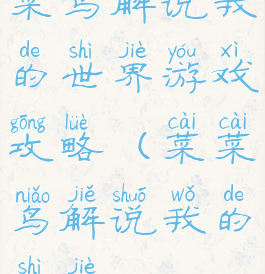 菜鸟解说我
de shì jiè yóu xì
的世界游戏
gōng lüè cài cài
攻略（菜菜
niǎo jiě shuō wǒ de
鸟解说我的
shì jiè